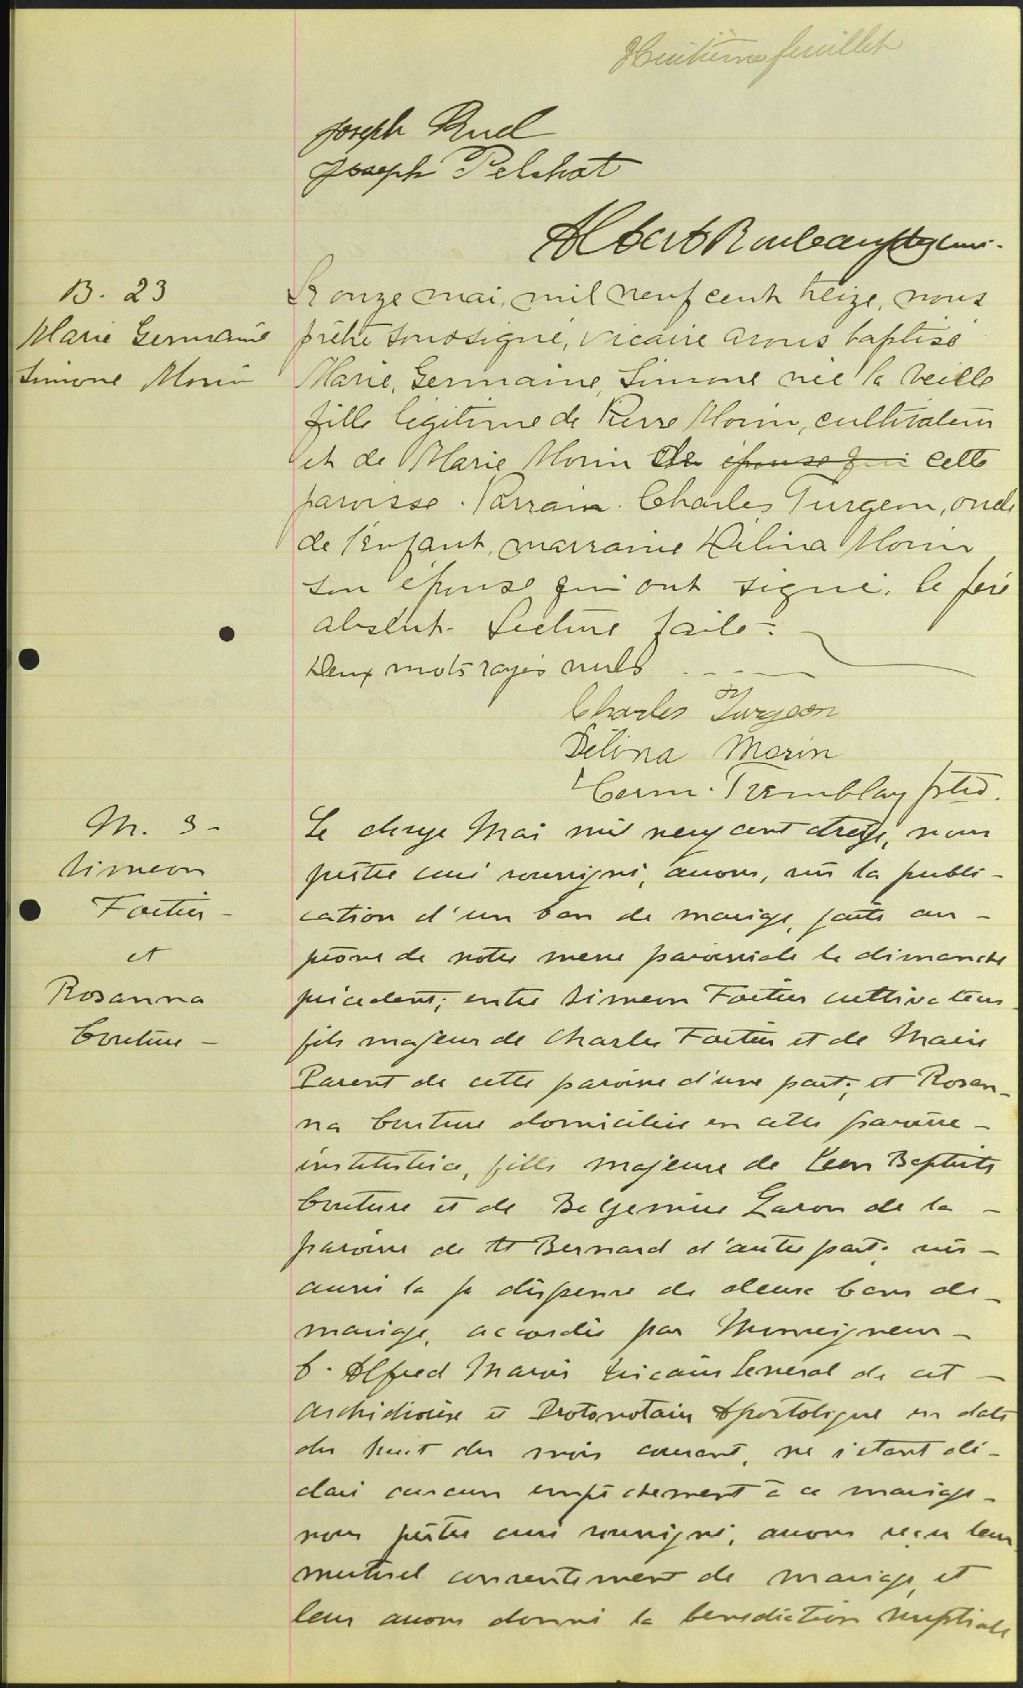 Huitième feuillet
Joseph Ruel
Joseph Pelchat
Albert Rouleau ptre curé.
B. 23
Marie Germaine
Simone Morin
Le onze mai, mil neuf cent treize, nous
prêtre soussigné, vicaire avons baptisé
Marie, Germaine, Simone née la veille
fille légitime de Pierre Morin, cultivateur
et de Marie Morin de épouse qui cette
paroisse. Parrain Charles Turgeon, oncle
de l'enfant, marraine Délina Morin
son épouse qui ont signé. le père
absent. Lecture faite.
Deux mots rayés nuls
Charles Turgeon
Délina Morin
Tremblay ptre.
M. 3 -
Simeon
Fortier -
et
Rosanna
Couture -
Le douze Mai mil neuf cent treize, nous
prêtre curé soussigné, avons, vu la publi-
cation d'un ban de mariage, faite au -
prône de notre messe paroissiale le dimanche
précédent; entre Simeon Fortier cultivateur
fils majeur de Charles Fortier et de Marie
Parent de cette paroisse d'une part; et Rosan-
na Couture domiciliée en cette paroisse -
institutrice, fille majeure de Jean Baptiste
Couture et de Garon de la -
paroisse de St Bernard d'autre part. vu -
aussi la dispense de deux bans de -
mariage, accordée par Monseigneur -
C. Alfred Marois Vicaire Général de cet -
Archidiocèse et Protonotaire Apostolique en date
du huit du mois courant, ne s'étant dé-
claré aucun empêchement à ce mariage -
nous prêtre curé soussigné, avons reçu leur
mutuel consentement de mariage, et
leur avons donné la bénédiction nuptiale